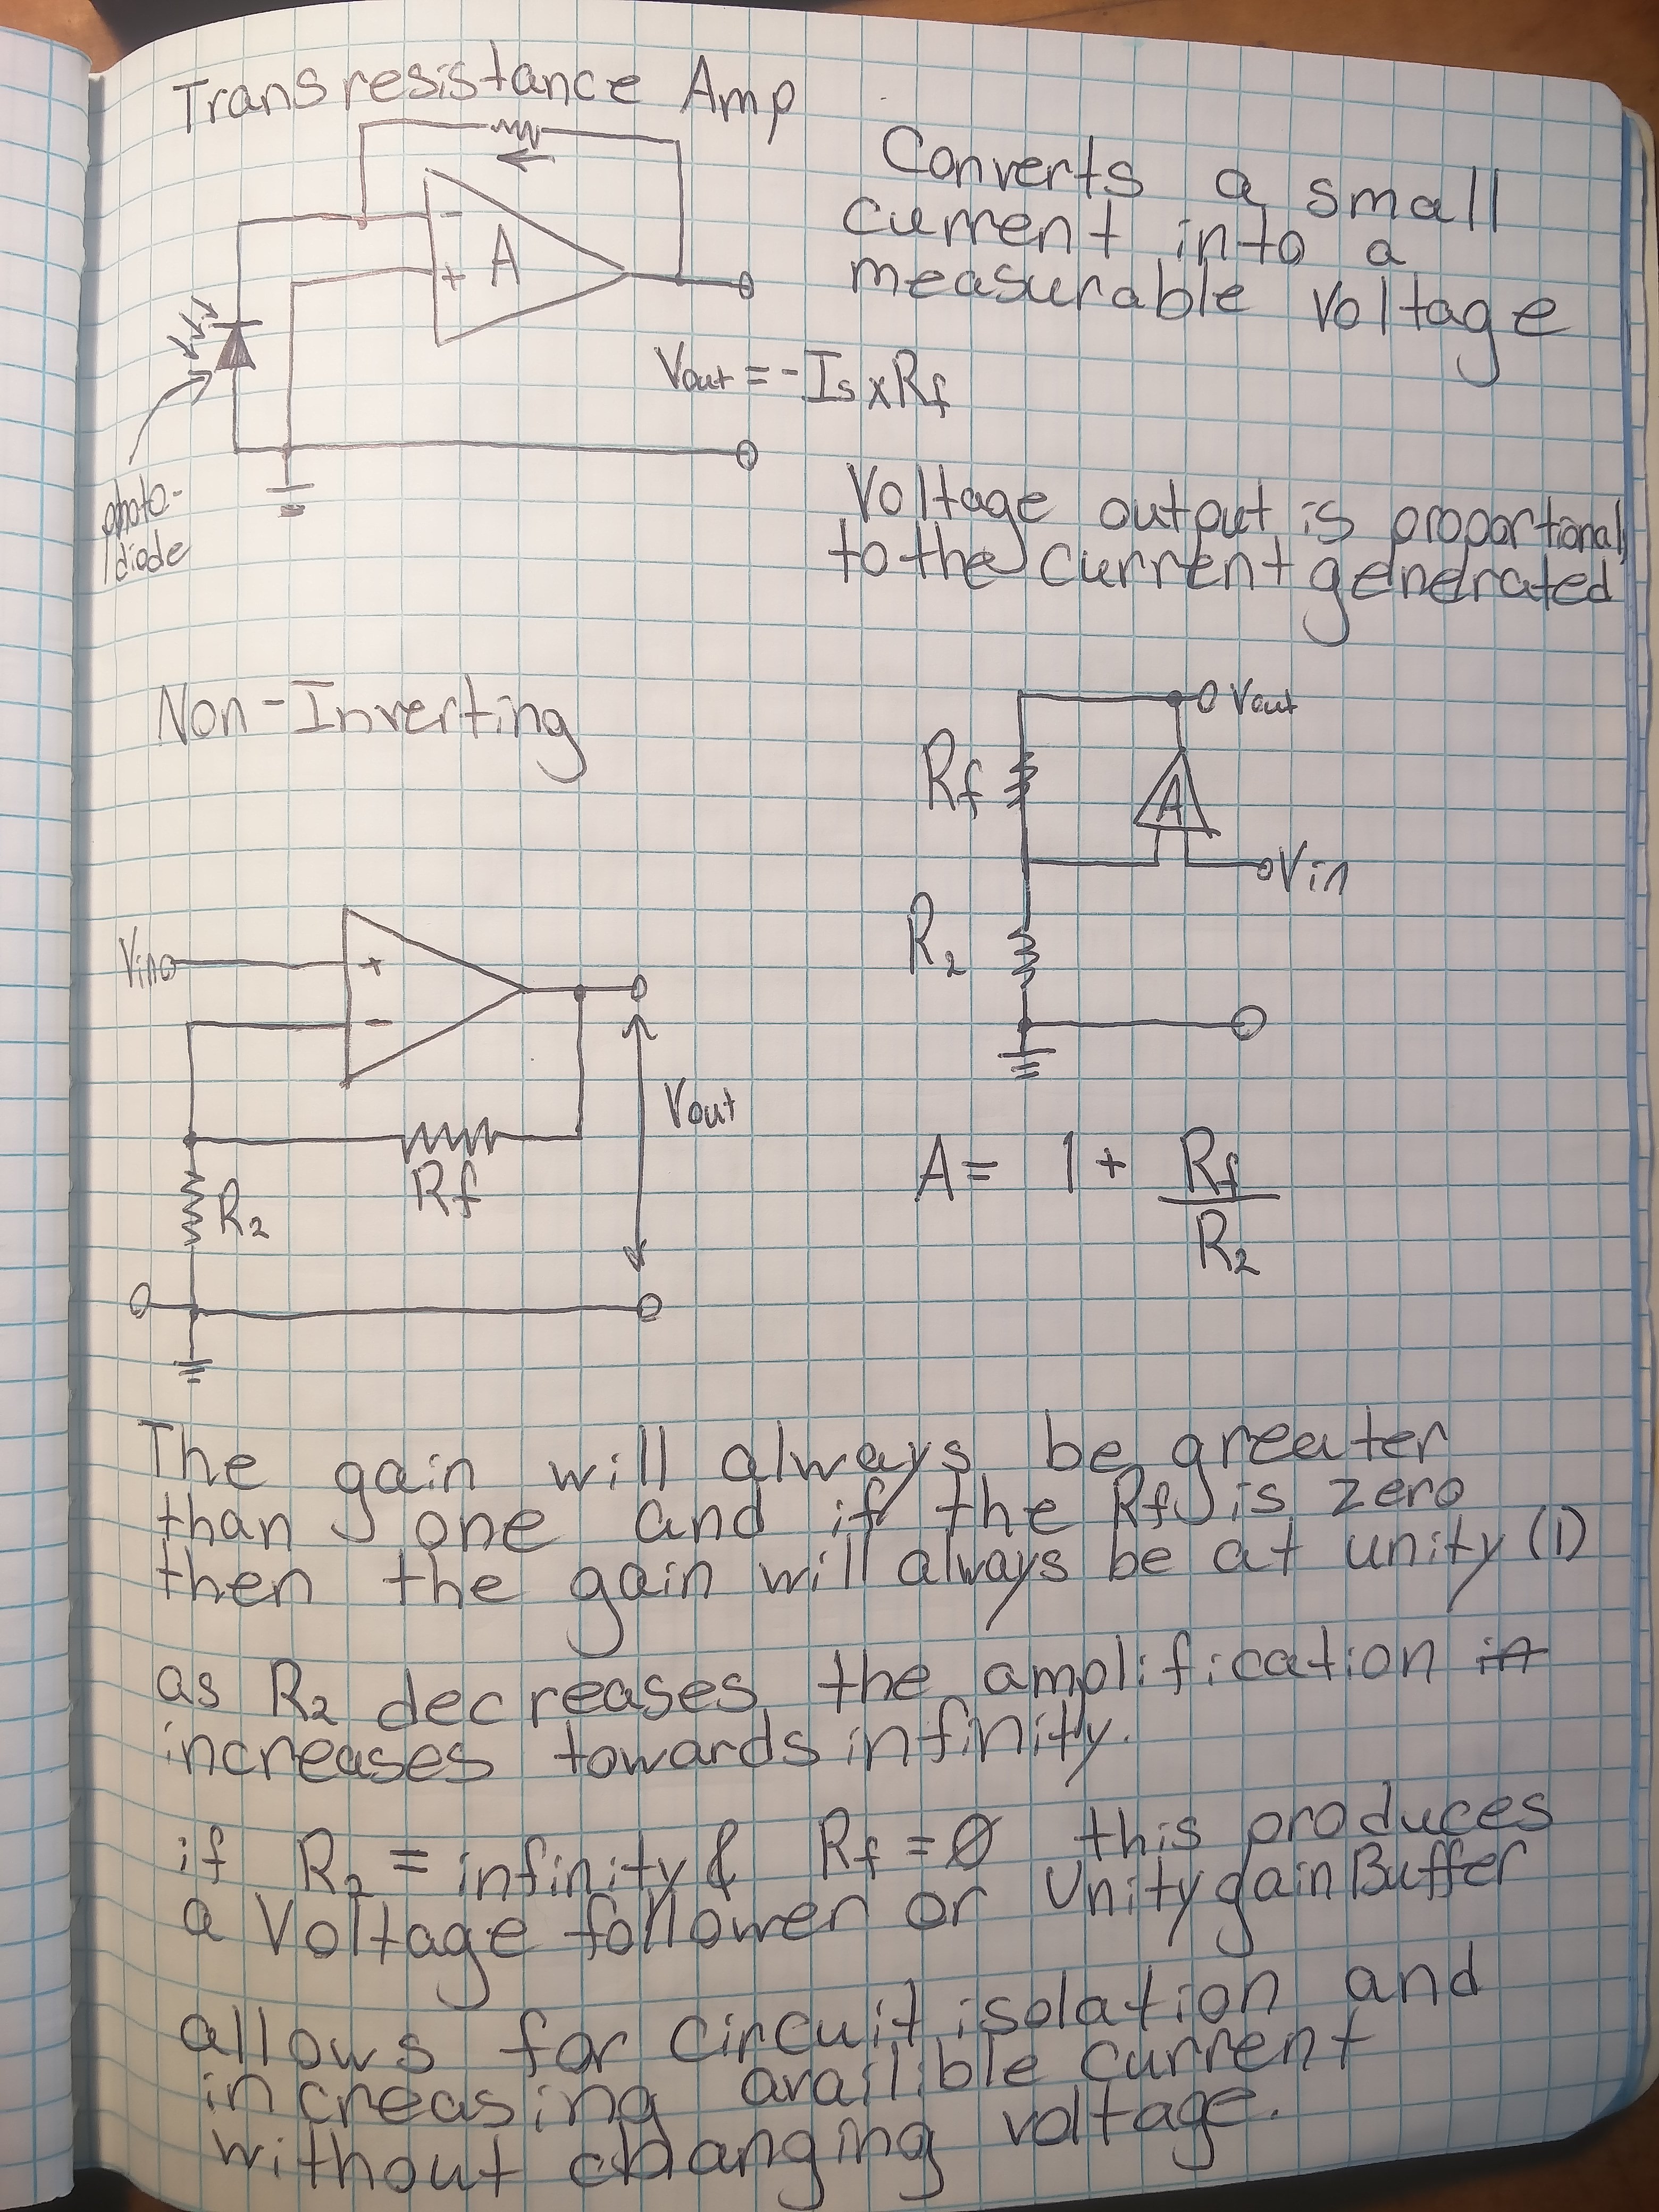 Transresistance Amp
Converts a small
current into a
measurable voltage
-
+
A
Vout = - Is x Rf
photo-
diode
Voltage output is proportional
to the current generated
Non-Inverting
Vout
Rf
A
Vin
R2
Vin
+
-
Vout
Rf
R2
A = 1 + Rf
R2
The gain will always be greater
than one and if the Rf is zero
then the gain will always be at unity (1)
as R2 decreases the amplification in
increases towards infinity.
if R2 = infinity & Rf = Ø this produces
a Voltage follower or Unity gain Buffer
allows for circuit isolation and
increasing availible current
without changing voltage.